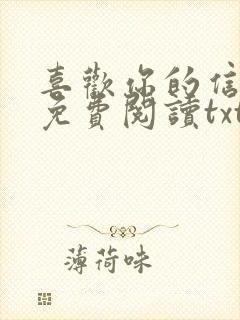 喜歡你的信
免費閱讀txt
薄荷味